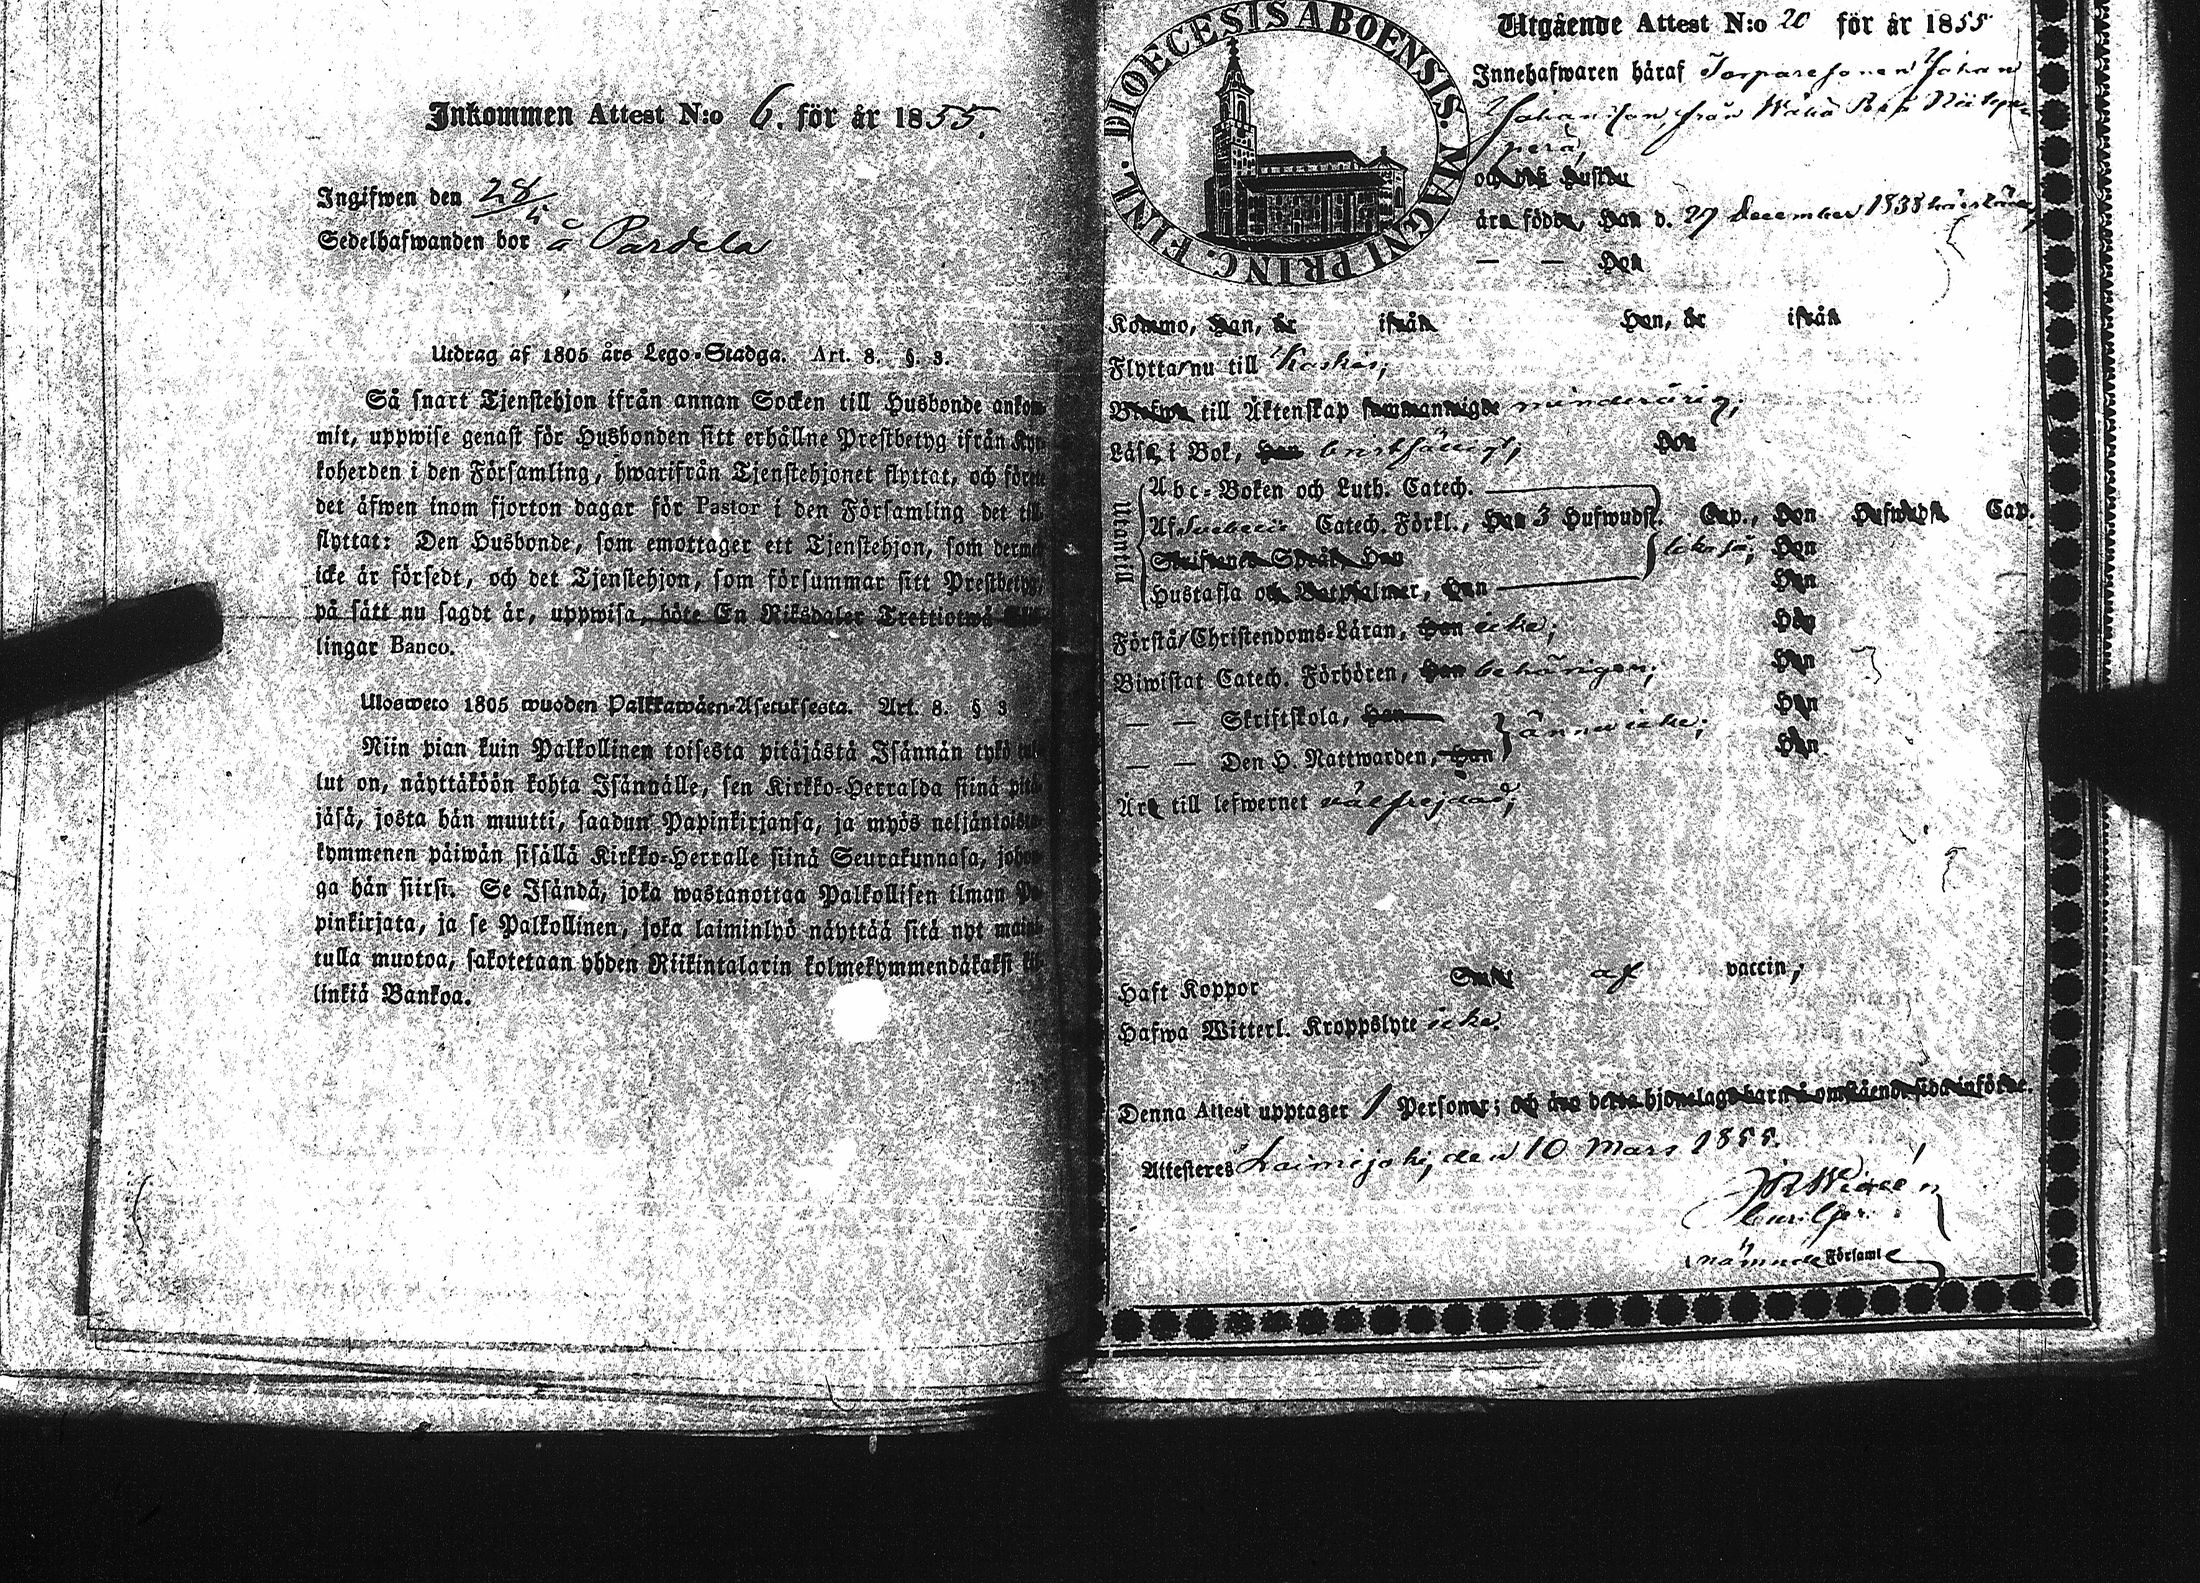 Inkommen Attest N:o 6. för år 1855.
Ingifwen den 28/4
Sedelhafwanden bor å Pardela
Utdrag af 1805 års Lego-Stadga. Art. 8. §. 3.
Så snart Tjenstehjon ifrån annan Socken till Husbonde ankom-
mit, uppwise genast för Husbonden sitt erhållne Prestbetyg ifrån Kyr-
koherden i den Församling, hwarifrån Tjenstehjonet flyttat, och förete
det äfwen inom fjorton dagar för Pastor i den Församling det till-
flyttat: Den Husbonde, som emottager ett Tjenstehjon, som dermed
icke är försedt, och det Tjenstehjon, som försummar sitt Prestbetyg,
på sätt nu sagdt är, uppwisa, böte En Riksdaler Trettiotwå Skil-
lingar Banco.
Ulosweto 1805 wuoden Palkkawäen-Asetuksesta. Art. 8. § 3
Niin pian kuin Palkollinen toisesta pitäjästä Isännän tykö tul-
lut on, näyttäköön kohta Isännälle, sen Kirkko-Herralda siinä pitä-
jäsä, josta hän muutti, saadun Papinkirjansa, ja myös neljäntoista-
kymmenen päiwän sisällä Kirkko-Herralle siinä Seurakunnasa, johon-
ga hän siirsi. Se Isändä, joka wastanottaa Palkollisen ilman Pa-
pinkirjata, ja se Palkollinen, joka laiminlyö näyttää sitä nyt mainit-
tulla muotoa, sakotetaan yhden Riikintalarin kolmekymmendäkaksi kil-
linkiä Bankoa.
FINL. DIOECESIS ABOENSIS. MAGNI PRINC.
Utgående Attest N:o 20 för år 1855
Innehafwaren häraf Torparesonen Johan
Johansson, från
perä,
och des hustru
äro födde, Han d. 27 December 1838 härstädes,
— — Hon
Kommo, Han, år ifrån Hon, år ifrån
Flytta nu till Kaskis,
till Äktenskap minderårig;
Läsa i Bok, Han bristfälligt, Hon
Utantill
Abc-Boken och Luth. Catech.
Af Svebelii Catech. Förkl., Han 3 Hufwudst. Cap., Hon Hufwudst. Cap.
Skriftenes Språk, Han likaså; Hon
Hustafla och Botpsalmer, Han Hon
Förstå Christendoms-Läran, Han icke; Hon
Biwistat Catech. Förhören, Han behörigen; Hon
— — Skriftskola, Han Hon
ännu icke;
— — Den H. Nattwarden, Han Hon
Äro till lefwernet välfrejdad;
Haft Koppor af vaccin;
Hafwa Witterl. Kroppslyte icke.
Denna Attest upptager 1 Personer; och äro detta hjonelags barn å omstående sida införde.
Attesteres Laimijoki, den 10 Mars 1855.
nämnde Församl